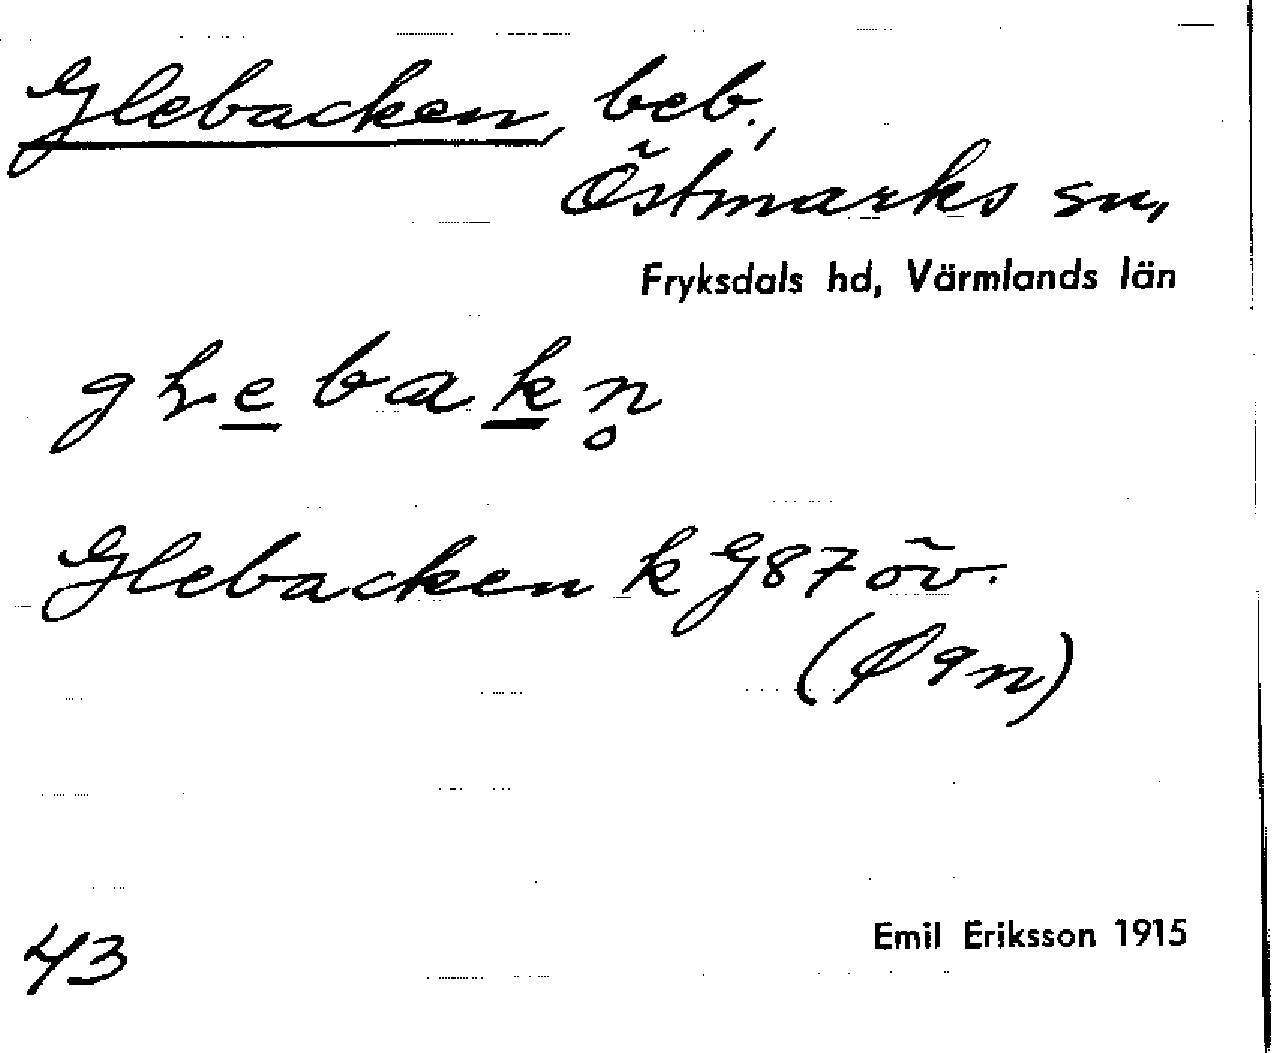 Glebacken, beb.,
Östmarks sn,
Fryksdals hd, Värmlands län
gLebakn̥
Glebacken k G87 öv.
(Ø9n)
43
Emil Eriksson 1915